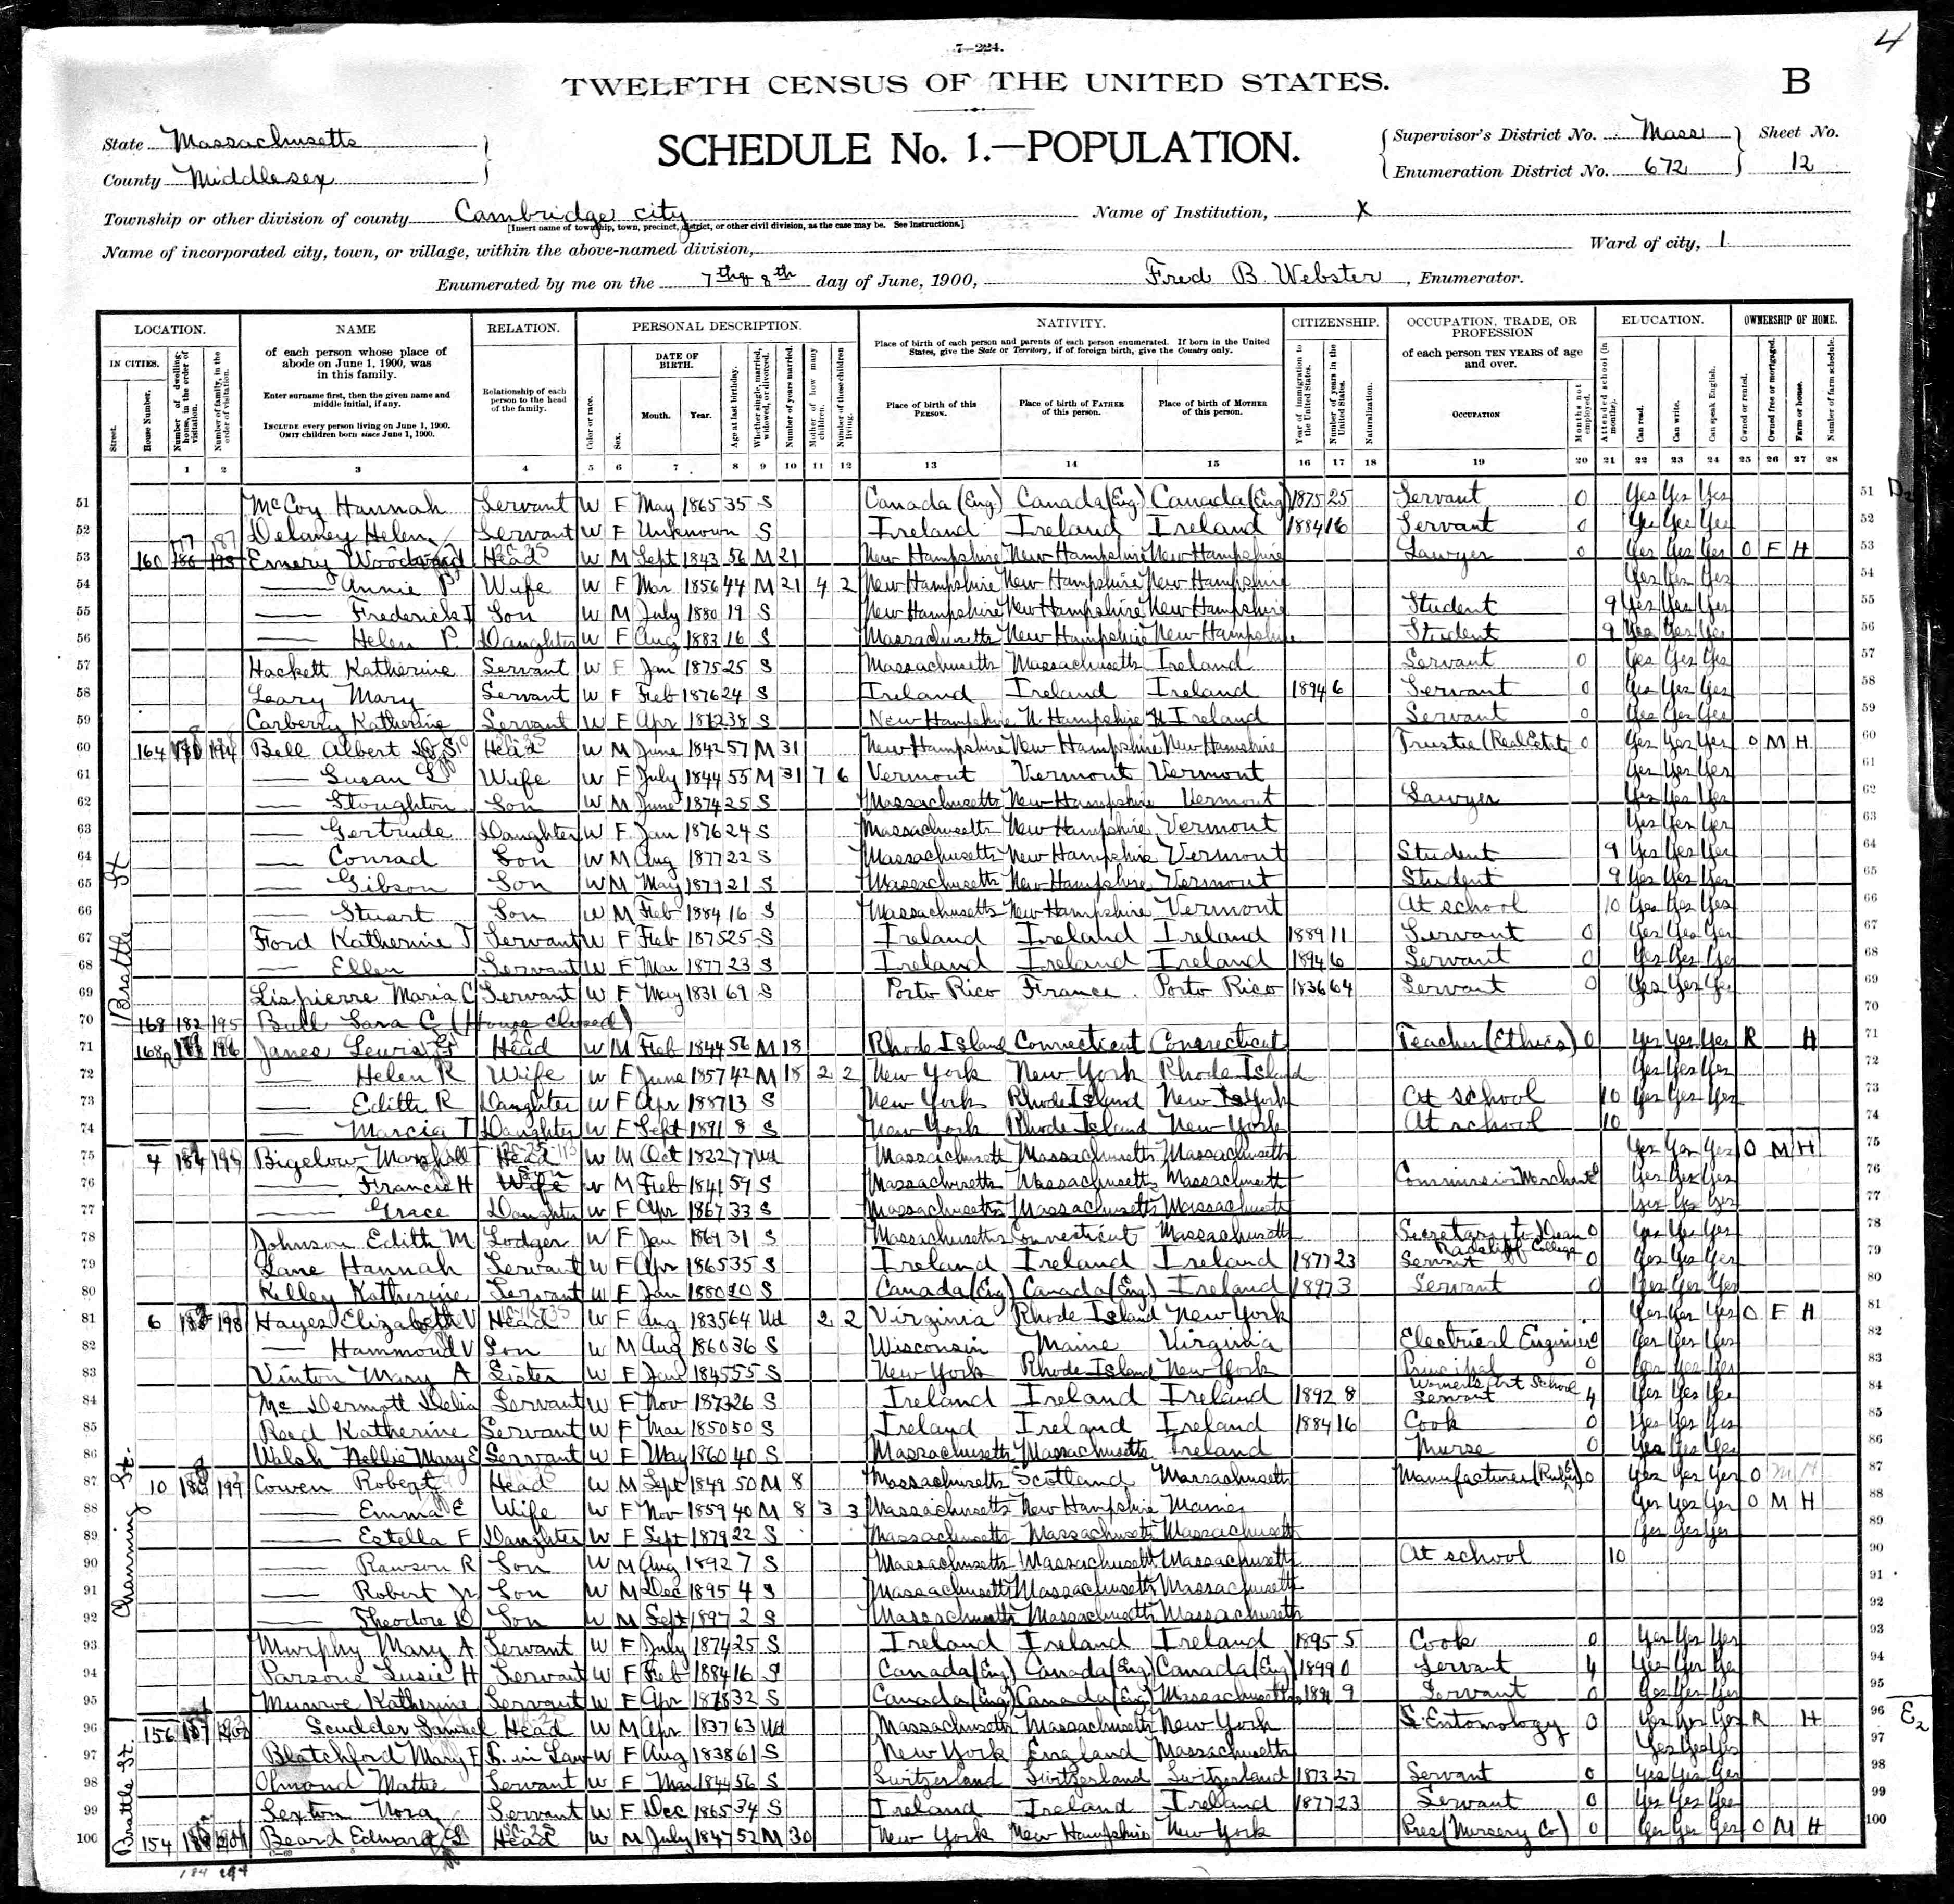 4
7—224.
TWELFTH CENSUS OF THE UNITED STATES.
B
State Massachusetts
County Middlesex
SCHEDULE No. 1.—POPULATION.
Supervisor's District No. Mass
Enumeration District No. 672
Sheet No. 12
Township or other division of county Cambridge city
[Insert name of township, town, precinct, district, or other civil division, as the case may be. See instructions.]
Name of Institution, X
Name of incorporated city, town, or village, within the above-named division,
Ward of city, 1
Enumerated by me on the 7th & 8th day of June, 1900, Fred B. Webster, Enumerator.
LOCATION. NAME RELATION. PERSONAL DESCRIPTION. NATIVITY. CITIZENSHIP. OCCUPATION, TRADE, OR PROFESSION EDUCATION. OWNERSHIP OF HOME.
IN CITIES. Street. House Number. Number of dwelling-house, in the order of visitation. Number of family, in the order of visitation.
of each person whose place of abode on June 1, 1900, was in this family.
Enter surname first, then the given name and middle initial, if any.
INCLUDE every person living on June 1, 1900. OMIT children born since June 1, 1900.
Relationship of each person to the head of the family.
Color or race. Sex. DATE OF BIRTH. Month. Year. Age at last birthday. Whether single, married, widowed, or divorced. Number of years married. Mother of how many children. Number of these children living.
Place of birth of each person and parents of each person enumerated. If born in the United States, give the State or Territory; if of foreign birth, give the Country only.
Place of birth of this PERSON. Place of birth of FATHER of this person. Place of birth of MOTHER of this person.
Year of immigration to the United States. Number of years in the United States. Naturalization.
of each person TEN YEARS of age and over.
OCCUPATION Months not employed.
Attended school (in months). Can read. Can write. Can speak English.
Owned or rented. Owned free or mortgaged. Farm or house. Number of farm schedule.
1 2 3 4 5 6 7 8 9 10 11 12 13 14 15 16 17 18 19 20 21 22 23 24 25 26 27 28
51 McCoy Hannah Servant W F May 1865 35 S Canada (Eng) Canada (Eng) Canada (Eng) 1875 25 Servant 0 Yes Yes Yes 51
52 Delaney Helen Servant W F Unknown S Ireland Ireland Ireland 1884 16 Servant 0 Yes Yes Yes 52
53 160 Emery Woodward Head W M Sept 1843 56 M 21 New Hampshire New Hampshire New Hampshire Lawyer 0 Yes Yes Yes O F H 53
54 — Annie P Wife W F Mar 1856 44 M 21 4 2 New Hampshire New Hampshire New Hampshire Yes Yes Yes 54
55 — Frederick I Son W M July 1880 19 S New Hampshire New Hampshire New Hampshire Student 9 Yes Yes Yes 55
56 — Helen P. Daughter W F Aug 1883 16 S Massachusetts New Hampshire New Hampshire Student 9 Yes Yes Yes 56
57 Hackett Katherine Servant W F Jan 1875 25 S Massachusetts Massachusetts Ireland Servant 0 Yes Yes Yes 57
58 Leary Mary Servant W F Feb 1876 24 S Ireland Ireland Ireland 1894 6 Servant 0 Yes Yes Yes 58
59 Carberry Katherine Servant W F Apr 38 S New Hampshire N Hampshire Ireland Servant 0 Yes Yes Yes 59
60 164 194 Bell Albert D. S. Head W M June 1842 57 M 31 New Hampshire New Hampshire New Hamshire Trustee (Real Estate 0 Yes Yes Yes O M H 60
61 — Susan L Wife W F July 1844 55 M 31 7 6 Vermont Vermont Vermont Yes Yes Yes 61
62 — Stoughton Son W M June 1874 25 S Massachusetts New Hampshire Vermont Lawyer Yes Yes Yes 62
63 — Gertrude Daughter W F Jan 1876 24 S Massachusetts New Hampshire Vermont Yes Yes Yes 63
64 — Conrad Son W M Aug 1877 22 S Massachusetts New Hampshire Vermont Student 9 Yes Yes Yes 64
65 — Gibson Son W M May 1879 21 S Massachusetts New Hampshire Vermont Student 9 Yes Yes Yes 65
66 — Stuart Son W M Feb 1884 16 S Massachusetts New Hampshire Vermont At school 10 Yes Yes Yes 66
67 Ford Katherine J Servant W F Feb 1875 25 S Ireland Ireland Ireland 1889 11 Servant 0 Yes Yes Yes 67
68 — Ellen Servant W F Mar 1877 23 S Ireland Ireland Ireland 1894 6 Servant 0 Yes Yes Yes 68
69 Lispierre Maria C Servant W F May 1831 69 S Porto Rico France Porto Rico 1836 64 Servant 0 Yes Yes Yes 69
70 Brattle St 168 182 195 Bull Sara C (House closed) 70
71 168 196 Janes Lewis G Head W M Feb 1844 56 M 18 Rhode Island Connecticut Connecticut Teacher (Ethics) 0 Yes Yes Yes R H 71
72 — Helen R Wife W F June 1857 42 M 18 2 2 New York New York Rhode Island Yes Yes Yes 72
73 — Edith R Daughter W F Apr 1887 13 S New York Rhode Island New York At school 10 Yes Yes Yes 73
74 — Marcia T Daughter W F Sept 1891 8 S New York Rhode Island New York At school 10 74
75 4 184 Bigelow Marshall T Head W M Oct 1822 77 Wd Massachusetts Massachusetts Massachusetts Yes Yes Yes O M H 75
76 — Francis H Wife Son W M Feb 1841 59 S Massachusetts Massachusetts Massachusetts Commission Merchant Yes Yes Yes 76
77 — Grace Daughter W F Apr 1867 33 S Massachusetts Massachusetts Massachusetts Yes Yes Yes 77
78 Johnson Edith M Lodger W F Jan 1869 31 S Massachusetts Connecticut Massachusetts Secretary to Dean Radcliff College 0 Yes Yes Yes 78
79 Lane Hannah Servant W F Apr 1865 35 S Ireland Ireland Ireland 1877 23 Servant 0 Yes Yes Yes 79
80 Killey Katherine Servant W F Jan 1880 20 S Canada (Eng) Canada (Eng) Ireland 1897 3 Servant 0 Yes Yes Yes 80
81 6 198 Hayes Elizabeth V Head W F Aug 1835 64 Wd 2 2 Virginia Rhode Island New York Yes Yes Yes O F H 81
82 — Hammond V Son W M Aug 1860 36 S Wisconsin Maine Virginia Electrical Engineer Yes Yes Yes 82
83 Vinton Mary A Sister W F Jan 1845 55 S New York Rhode Island New York Principal Womens Art School 0 Yes Yes Yes 83
84 McDermott Delia Servant W F Nov 1873 26 S Ireland Ireland Ireland 1892 8 Servant 4 Yes Yes Yes 84
85 Reed Katherine Servant W F Mar 1850 50 S Ireland Ireland Ireland 1884 16 Cook 0 Yes Yes Yes 85
86 Walsh Nellie Mary E Servant W F May 1860 40 S Massachusetts Massachusetts Ireland Nurse 0 Yes Yes Yes 86
87 Channing St. 10 199 Cowen Robert Head W M Sept 1849 50 M 8 Massachusetts Scotland Massachusetts Manufacturer (Rubber) 0 Yes Yes Yes O M H 87
88 — Emma E Wife W F Nov 1859 40 M 8 3 3 Massachusetts New Hampshire Yes Yes Yes O M H 88
89 — Estella F Daughter W F Sept 1879 22 S Massachusetts Massachusetts Massachusetts Yes Yes Yes 89
90 — Rawson R Son W M Aug 1892 7 S Massachusetts Massachusetts Massachusetts At school 10 90
91 — Robert Jr Son W M Dec 1895 4 S Massachusetts Massachusetts Massachusetts 91
92 — Theodore D Son W M Sept 1897 2 S Massachusetts Massachusetts Massachusetts 92
93 Murphy Mary A Servant W F July 1874 25 S Ireland Ireland Ireland 1895 5 Cook 0 Yes Yes Yes 93
94 Parsons Susie H Servant W F Feb 1884 16 S Canada (Eng) Canada (Eng) Canada (Eng) 1899 0 Servant 4 Yes Yes Yes 94
95 Munroe Katherine Servant W F Apr 32 S Canada (Eng) Canada (Eng) Massachusetts 1891 9 Servant 0 Yes Yes Yes 95
96 156 Scudder Samuel Head W M Apr 1837 63 Wd Massachusetts Massachusetts New York S. Entomology 0 Yes Yes Yes R H 96
97 Blatchford Mary E S. in Law W F Aug 1838 61 S New York England Massachusetts Yes Yes Yes 97
98 Olmond Mattie Servant W F Mar 1844 56 S Switzerland Switzerland Switzerland 1873 27 Servant 0 Yes Yes Yes 98
99 Sexton Nora Servant W F Dec 1865 34 S Ireland Ireland Ireland 1877 23 Servant 0 Yes Yes Yes 99
100 Brattle St. 154 Beard Edward L Head W M July 1847 52 M 30 New York New Hampshire New York Pres (Nursery Co) 0 Yes Yes Yes O M H 100
184 194